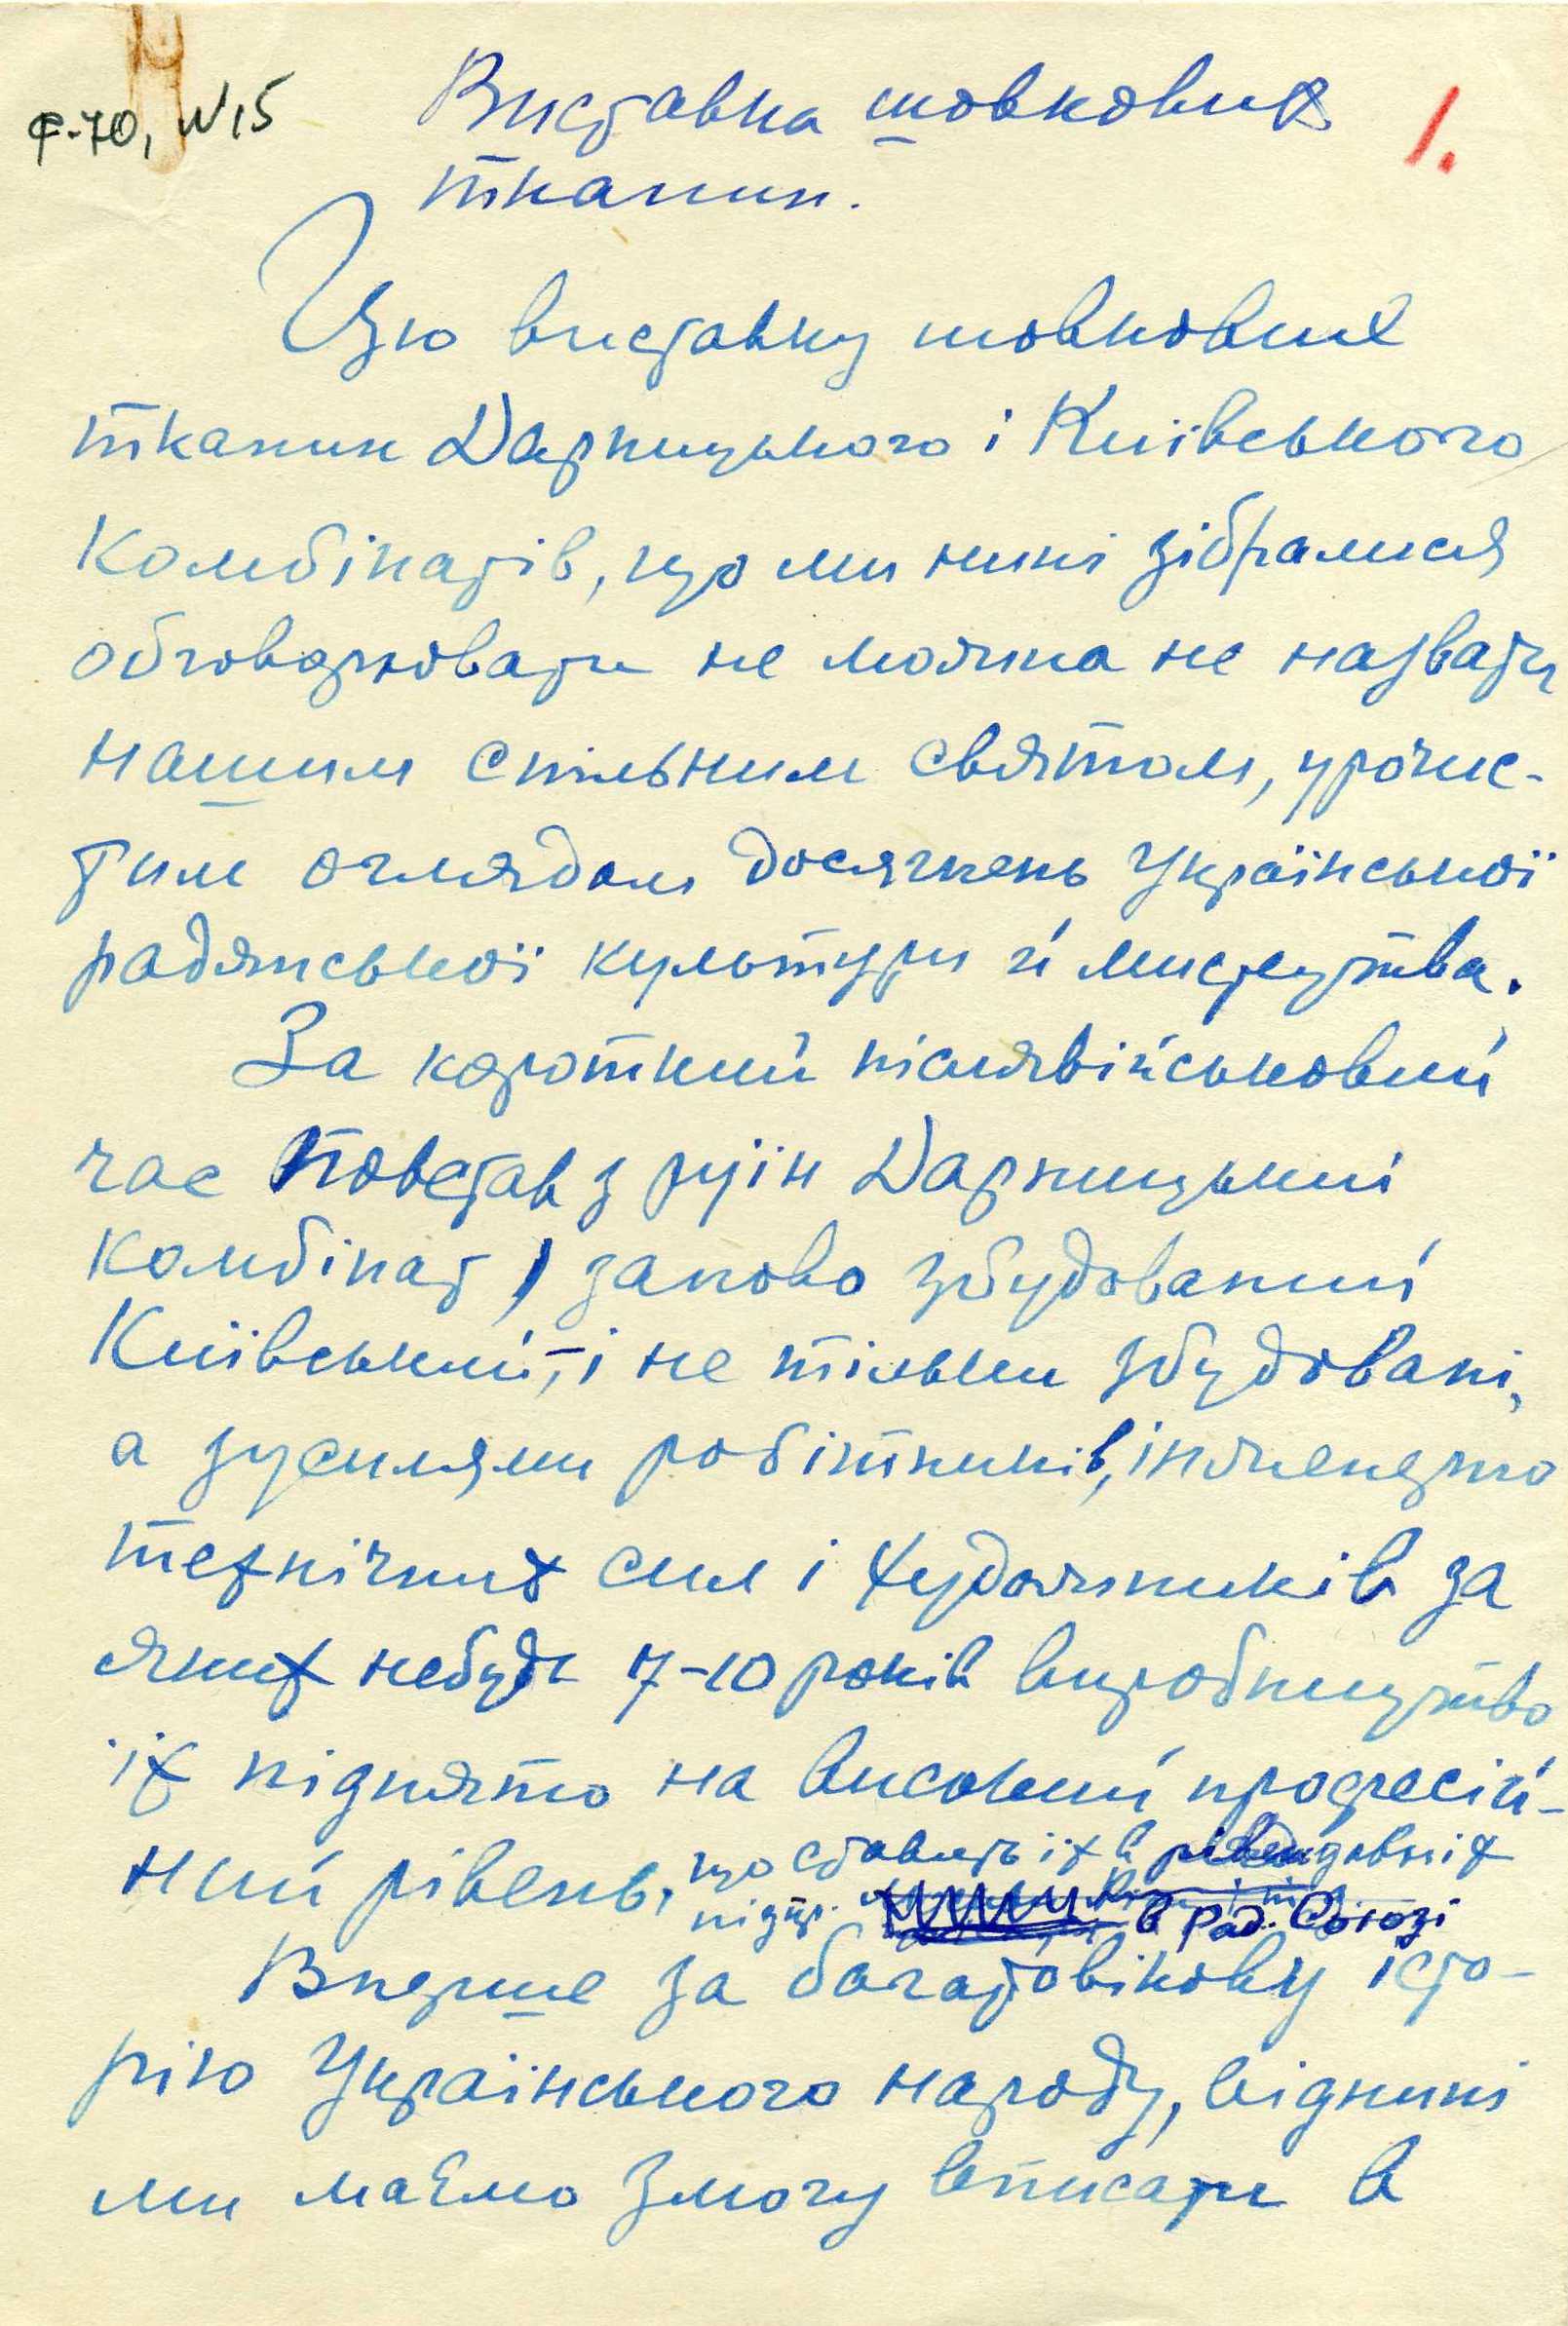 Ф-70, N15
Виставка шовкових
1.
тканин.
Цю виставку шовкових
тканин Дарницького і Київського
Комбінатів, що ми нині зібралися
обговорювати не можна не назвати
нашим спільним святом, урочис-
тим оглядом досягнень Української
радянської культури й мистецтва.
За короткий післявійськовий
час повстав з руїн Дарницький
комбінат, заново збудований
Київський, – і не тільки збудовані,
а зусилями робітників, інженерно
технічних сил і художників за
яких небудь 7-10 років виробництво
їх піднято на високий професій-
ний рівень, що ставить їх в рівень давніх
підпр. в Рад. Союзі
Вперше за багатовікову істо-
рію Українського народу, віднині
ми маємо змогу вписати в